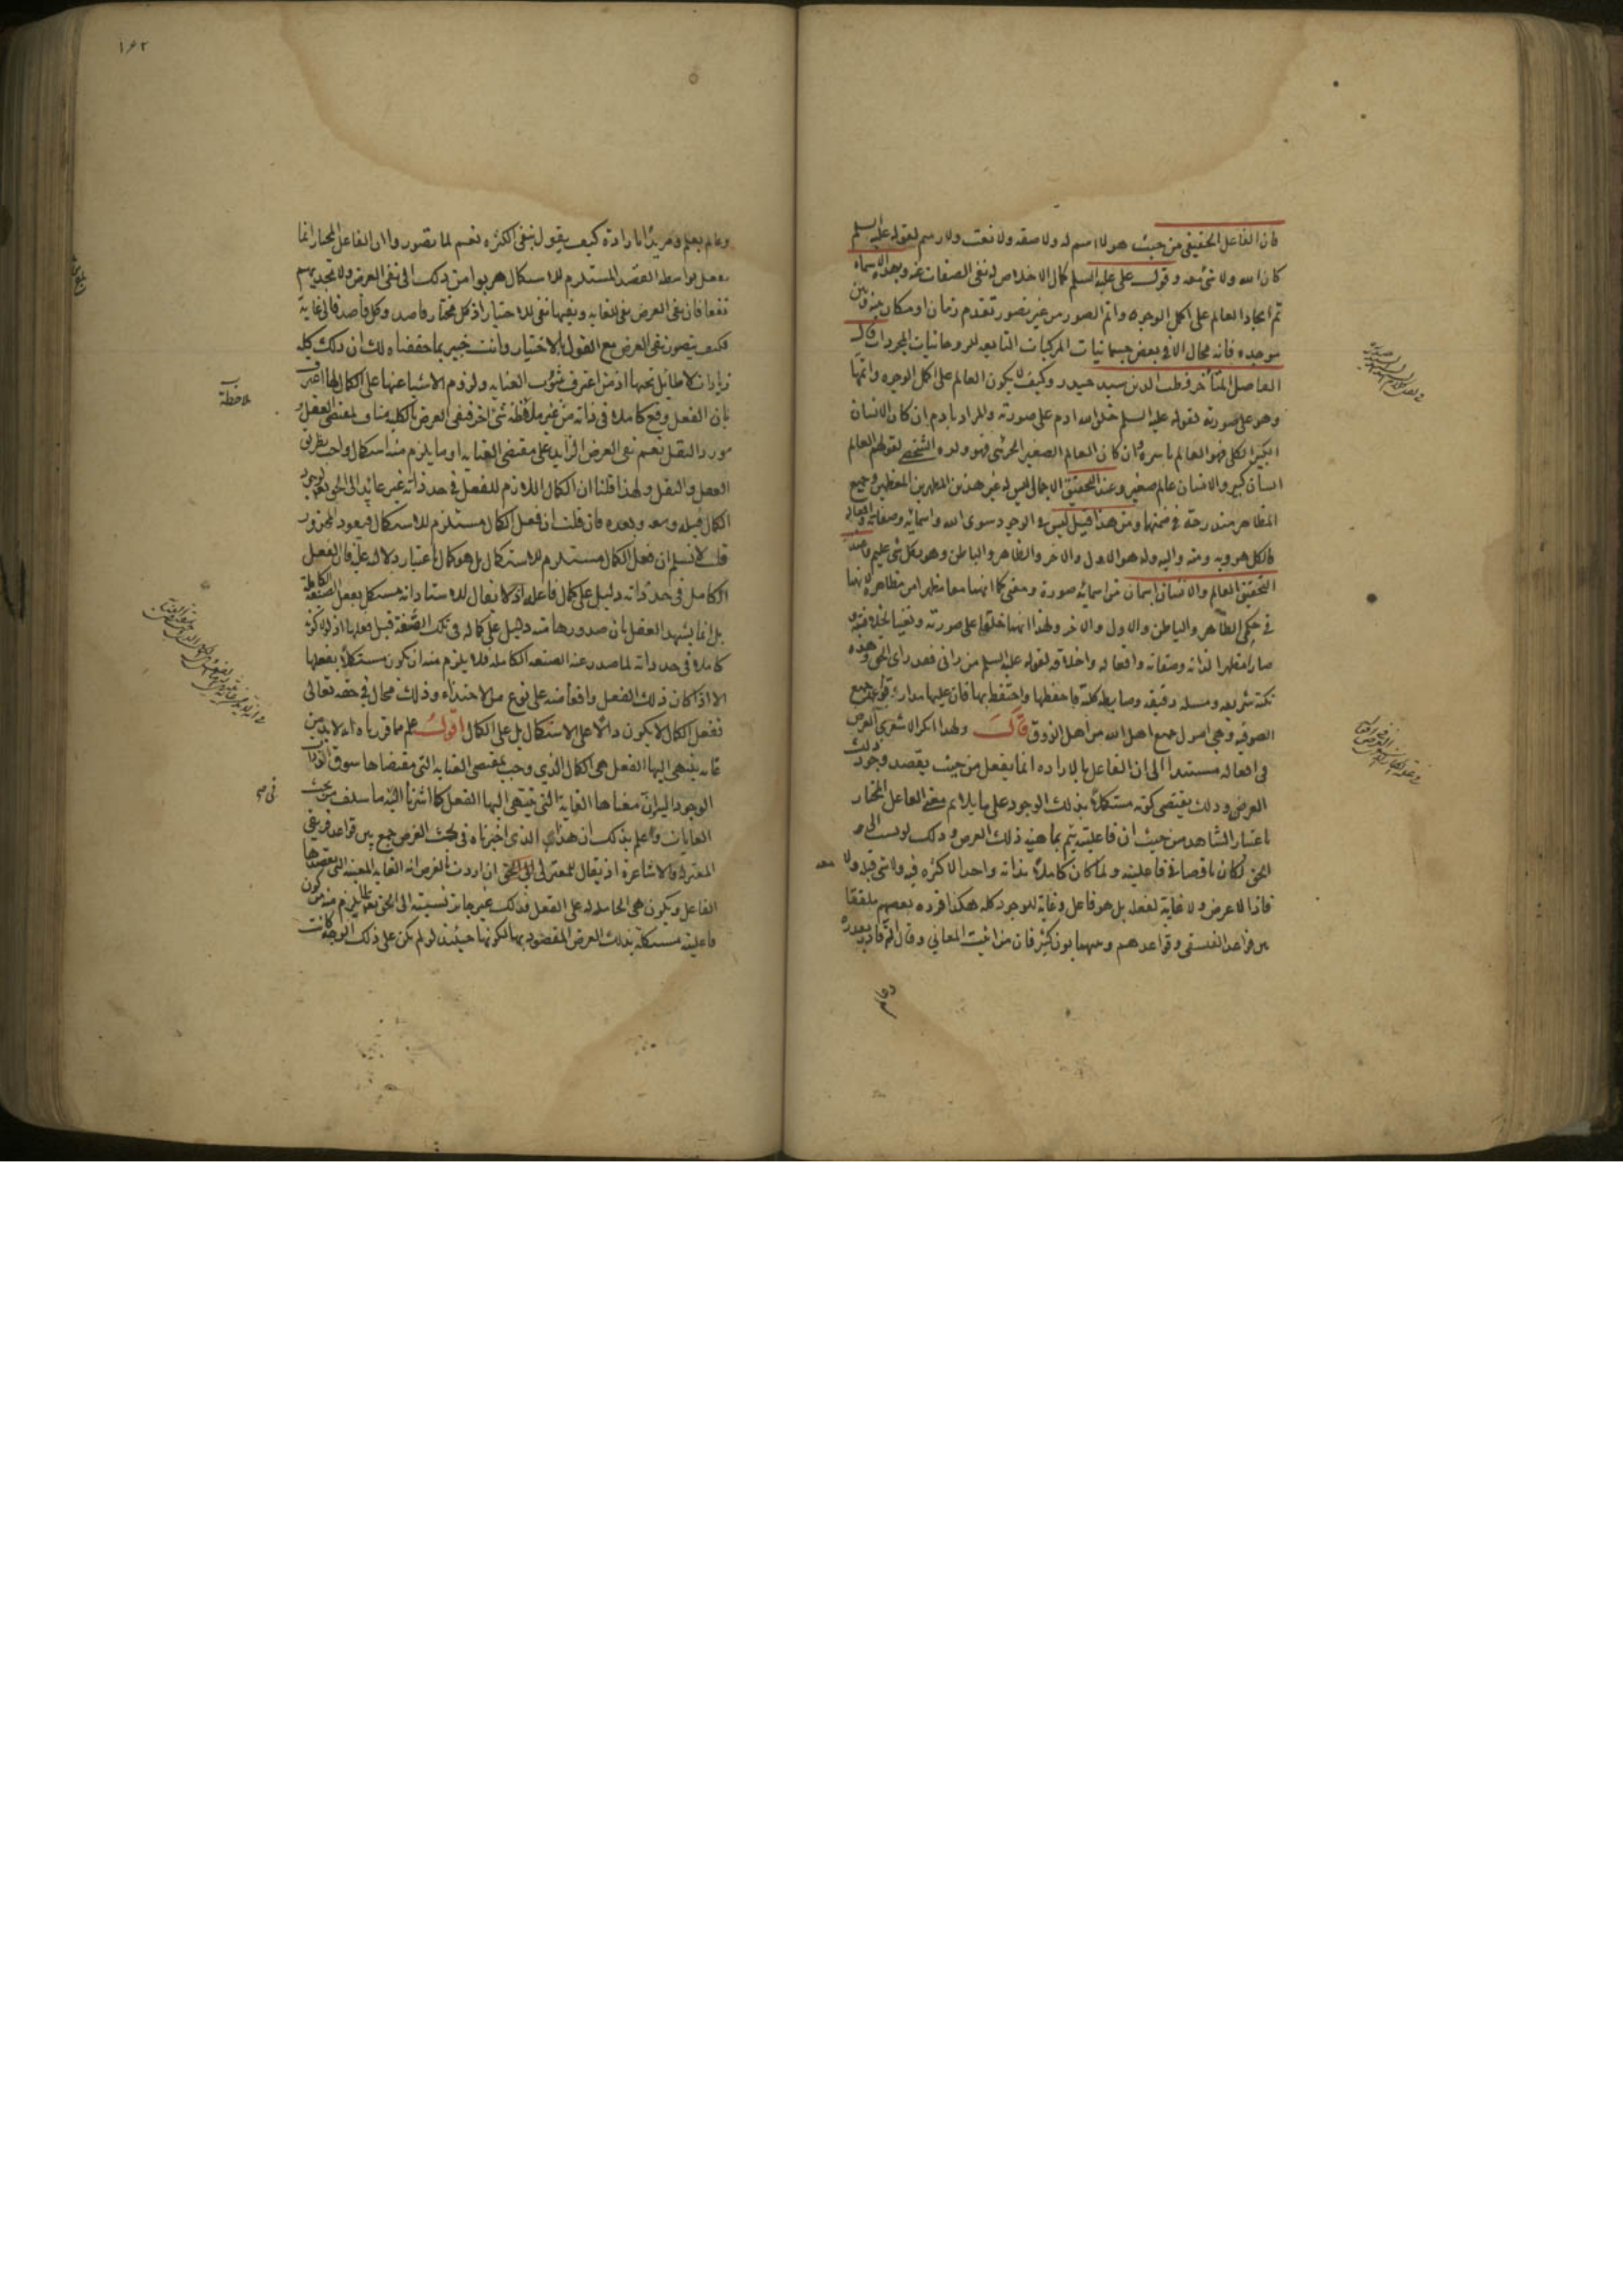 فان الفاعل الحقيقي من حيث هو لا اسم له ولا صفه ولا نعت ولا رسم لقوله عليه السلم
كان الله ولا شئ معه وقول على عليه السلم كمال الاخلاص له نفى الصفات عنه وبهذه الاسماء
تم ايجاد العالم على اكمل الوجوه واتم الصور من غير تصور تقدم زمان او مكان بينه وبين
موجده فانه محال الا فى بعض جسمانيات المركبات التابعه للروحانيات المجردات قال
الفاضل المتأخر قطب الدين سيد حيدر وكيف لا يكون العالم على اكمل الوجوه واتمها
وهو على صورته لقوله عليه السلم خلق الله ادم على صورته والمراد بادم ان كان الانسان
الكبير الكلى فهو العالم باسره وان كان العالم الصغير الجزئى فهو ولده الشخصى لقولهم العالم
انسان كبير والانسان عالم صغير وعند التحقيق الاجمالى ليس له غير هذين المظهرين المعظمين وجميع
المظاهر مندرجة فى ضمنها ومن هذا قيل ليس فى الوجود سوى الله واسمائه وصفاته وافعاله
فالكل هو وبه ومنه واليه وله هو الاول والاخر والظاهر والباطن وهو بكل شئ عليم
التحقيق العالم والانسان اسمان من اسمائه صورة ومعنى كما انهما معا مظهرا من مظاهره لانهما
فى حكم الظاهر والباطن والاول والاخر ولهذا انهما خلقا على صورته وتعينا لخلافته
صار مظهرا لذاته وصفاته وافعاله واخلاقه لقوله عليه السلم من رانى فقد راى الحق وهذه
نكتة شريفه ومسله دقيقه وضابطه كلية فاحفظها واحتفظ بها فان عليها مدار قواعد جميع
الصوفيه وهى اصول جميع اهل الله من اهل الذوق قال ولهذا انكر الاشعرى الغرض
فى افعاله مستندا الى ان الفاعل بالاراده انما يفعل من حيث يقصد وجود ذلك
الغرض وذلك يقتضى كونه مستكملا بذلك الوجود على ما يلايم معنى الفاعل المختار
باعتبار الشاهد من حيث ان فاعليته يتم بماهية ذلك الغرض وذلك لو نسب الى
الحق لكان ناقصا فى فاعليته ولما كان كاملا بذاته واحدا لا كثره فيه ولا شئ قبله ولا معه
فاذا لا غرض ولا غاية لفعله بل هو فاعل وغاية للوجود كله هكذا قرره بعضهم ملفقا
بين قواعد الفلسفى وقواعدهم وبينهما بون كثير فان من اثبت المعانى وقال انه قادر بقدرة
وعالم
١٦٢
وعالم بعلم ومريد بارادة كيف يقول بنفى الكثره نعم لما تصوروا ان الفاعل المختار انما
يفعل بواسطه القصد المستلزم للاستكمال هربوا من ذلك الى نفى الغرض ولا يجديهم
نفعا فان نفى الغرض نفى للغايه ونفيها نفى للاختيار اذ كل مختار قاصد وكل قاصد فالى غاية
فكيف يتصور نفى الغرض مع القول بالاختيار وانت خبير بما حققناه لك ان ذلك كله
زيادات لا طائل تحتها اذ من اعترف بثبوت العنايه ولزوم الاشياء عنها على الكمال لها اعترف
بان الفعل وقع كاملا فى ذاته من غير ملاحظة شئ اخر فنفى الغرض بالكليه مناف لمقتضى العقل
مورد النقل نعم نفى الغرض الزايد على مقتضى العنايه او ما يلزم منه استكمال واجب بطريق
العقل والنقل ولهذا قلنا ان الكمال اللازم للفعل فى حد ذاته غير عائد الى الحق لوجود
الكمال قبله ومعه وبعده فان قلت ان فعل الكمال مستلزم للاستكمال فيعود المحذور
قلت لا نسلم ان فعل الكمال مستلزم للاستكمال بل هو كمال باعتبار دلالته عليه فان الفعل
الكامل فى حد ذاته دليل على كمال فاعله اذ لا يقال للاستاد انه مستكمل بفعل الصنعة الكاملة
بل انما يشهد العقل بان صدورها منه دليل على كماله فى تلك الصنعة قبل فعلها اذ لولا كونه
كاملا فى حد ذاته لما صدر عنه الصنعه الكامله فلا يلزم منه ان يكون مستكملا بفعلها
الا اذا كان ذلك الفعل واقعا منه على نوع من الاحتذاء وذلك محال فى حقه تعالى
ففعل الكمال لا يكون دالا على الاستكمال بل على الكمال اقول علم مما قررناه انه لا بد من
غايه ينتهى اليها الفعل هى الكمال الذى وجب بمقتضى العنايه التى مقتضاها سوق
الوجود اليه لان معناها الغاية التى ينتهى اليها الفعل كما اشرنا اليه ما سلف من بحث
الغايات واعلم بذلك ان هذا الذى اخترناه فى بحث الغرض جمع بين قواعد فريقى
المعتزله والاشاعرة اذ يقال للمعتزلى ان اردت بالغرض انه الغايه المعينه التى يقصدها
الفاعل ويكون هى الحامله له على الفعل فذلك غير جايز نسبته الى الحق تعالى لما يلزم منه من كون
فاعليته مستكملة بذلك الغرض المقصود بها لكونها حينئذ لو لم يكن على ذلك الوجه كانت
ملاحظة